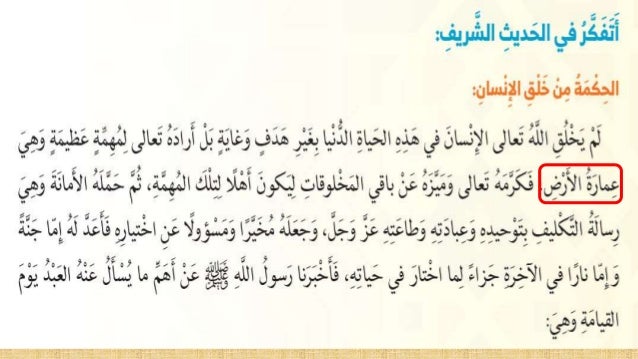 أَتَفَكَّرُ في الحَديثِ الشَّريفِ:
الحِكْمَةُ مِنْ خَلْقِ الإنْسانِ:
لَمْ يَخْلُقِ اللَّهُ تَعالى الإنْسانَ في هَذِهِ الحَياةِ الدُّنْيا بِغَيْرِ هَدَفٍ وَغايَةٍ بَلْ أَرادَهُ تَعالى لِمُهِمَّةٍ عَظيمَةٍ وَهِيَ
عِمارَةُ الأَرْضِ، فَكَرَّمَهُ تَعالى وَمَيَّزَهُ عَنْ باقي المَخْلوقاتِ لِيَكونَ أَهْلًا لِتِلْكَ المُهِمَّةِ، ثُمَّ حَمَّلَهُ الأَمانَةَ وَهِيَ
رِسالَةُ التَّكْليفِ بِتَوْحيدِهِ وَعِبادَتِهِ وَطاعَتِهِ عَزَّ وَجَلَّ، وَجَعَلَهُ مُخَيَّرًا وَمَسْؤولًا عَنِ اخْتِيارِهِ فَأَعَدَّ لَهُ إمّا جَنَّةً
وَإمّا نارًا في الآخِرَةِ جَزاءً لِما اخْتارَ في حَياتِهِ، فَأَخْبَرَنا رَسولُ اللَّهِ ﷺ عَنْ أَهَمِّ ما يُسْأَلُ عَنْهُ العَبْدُ يَوْمَ
القيامَةِ وَهِيَ: